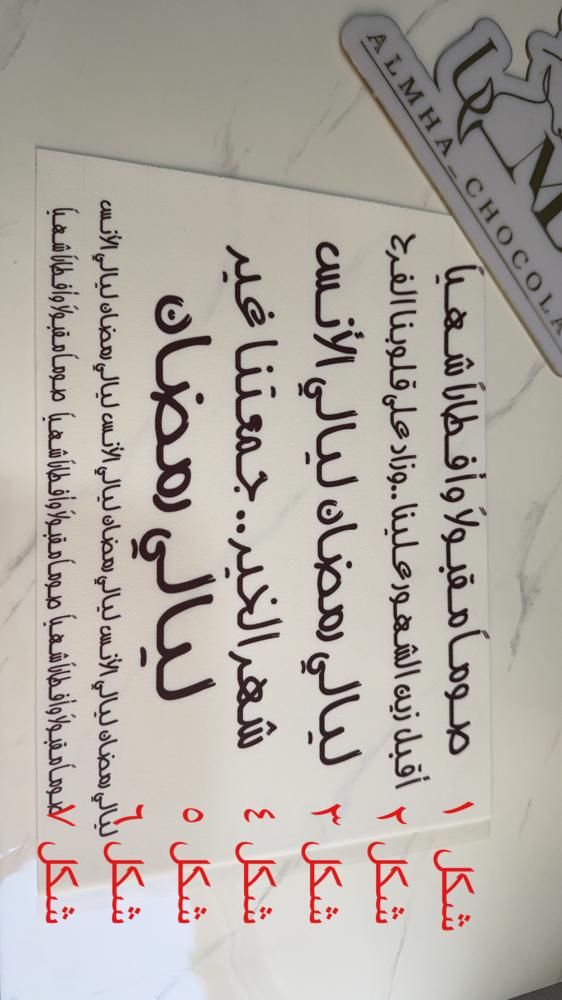 ALMHA_CHOCOLA
شكل ١ صوماً مقبولاً وأفطاراً شهياً
شكل ٢ أقبل زين الشهور علينا ..وزاد على قلوبنا الفرح
شكل ٣ ليالي رمضان ليالي الأنس
شكل ٤ شهر الخير.. جمعتنا غير
شكل ٥ ليالي رمضان
شكل ٦ ليالي رمضان ليالي الأنس ليالي رمضان ليالي الأنس ليالي رمضان ليالي الأنس
شكل ٧ صوماً مقبولاً وأفطاراً شهياً صوماً مقبولاً وأفطاراً شهياً صوماً مقبولاً وأفطاراً شهياً